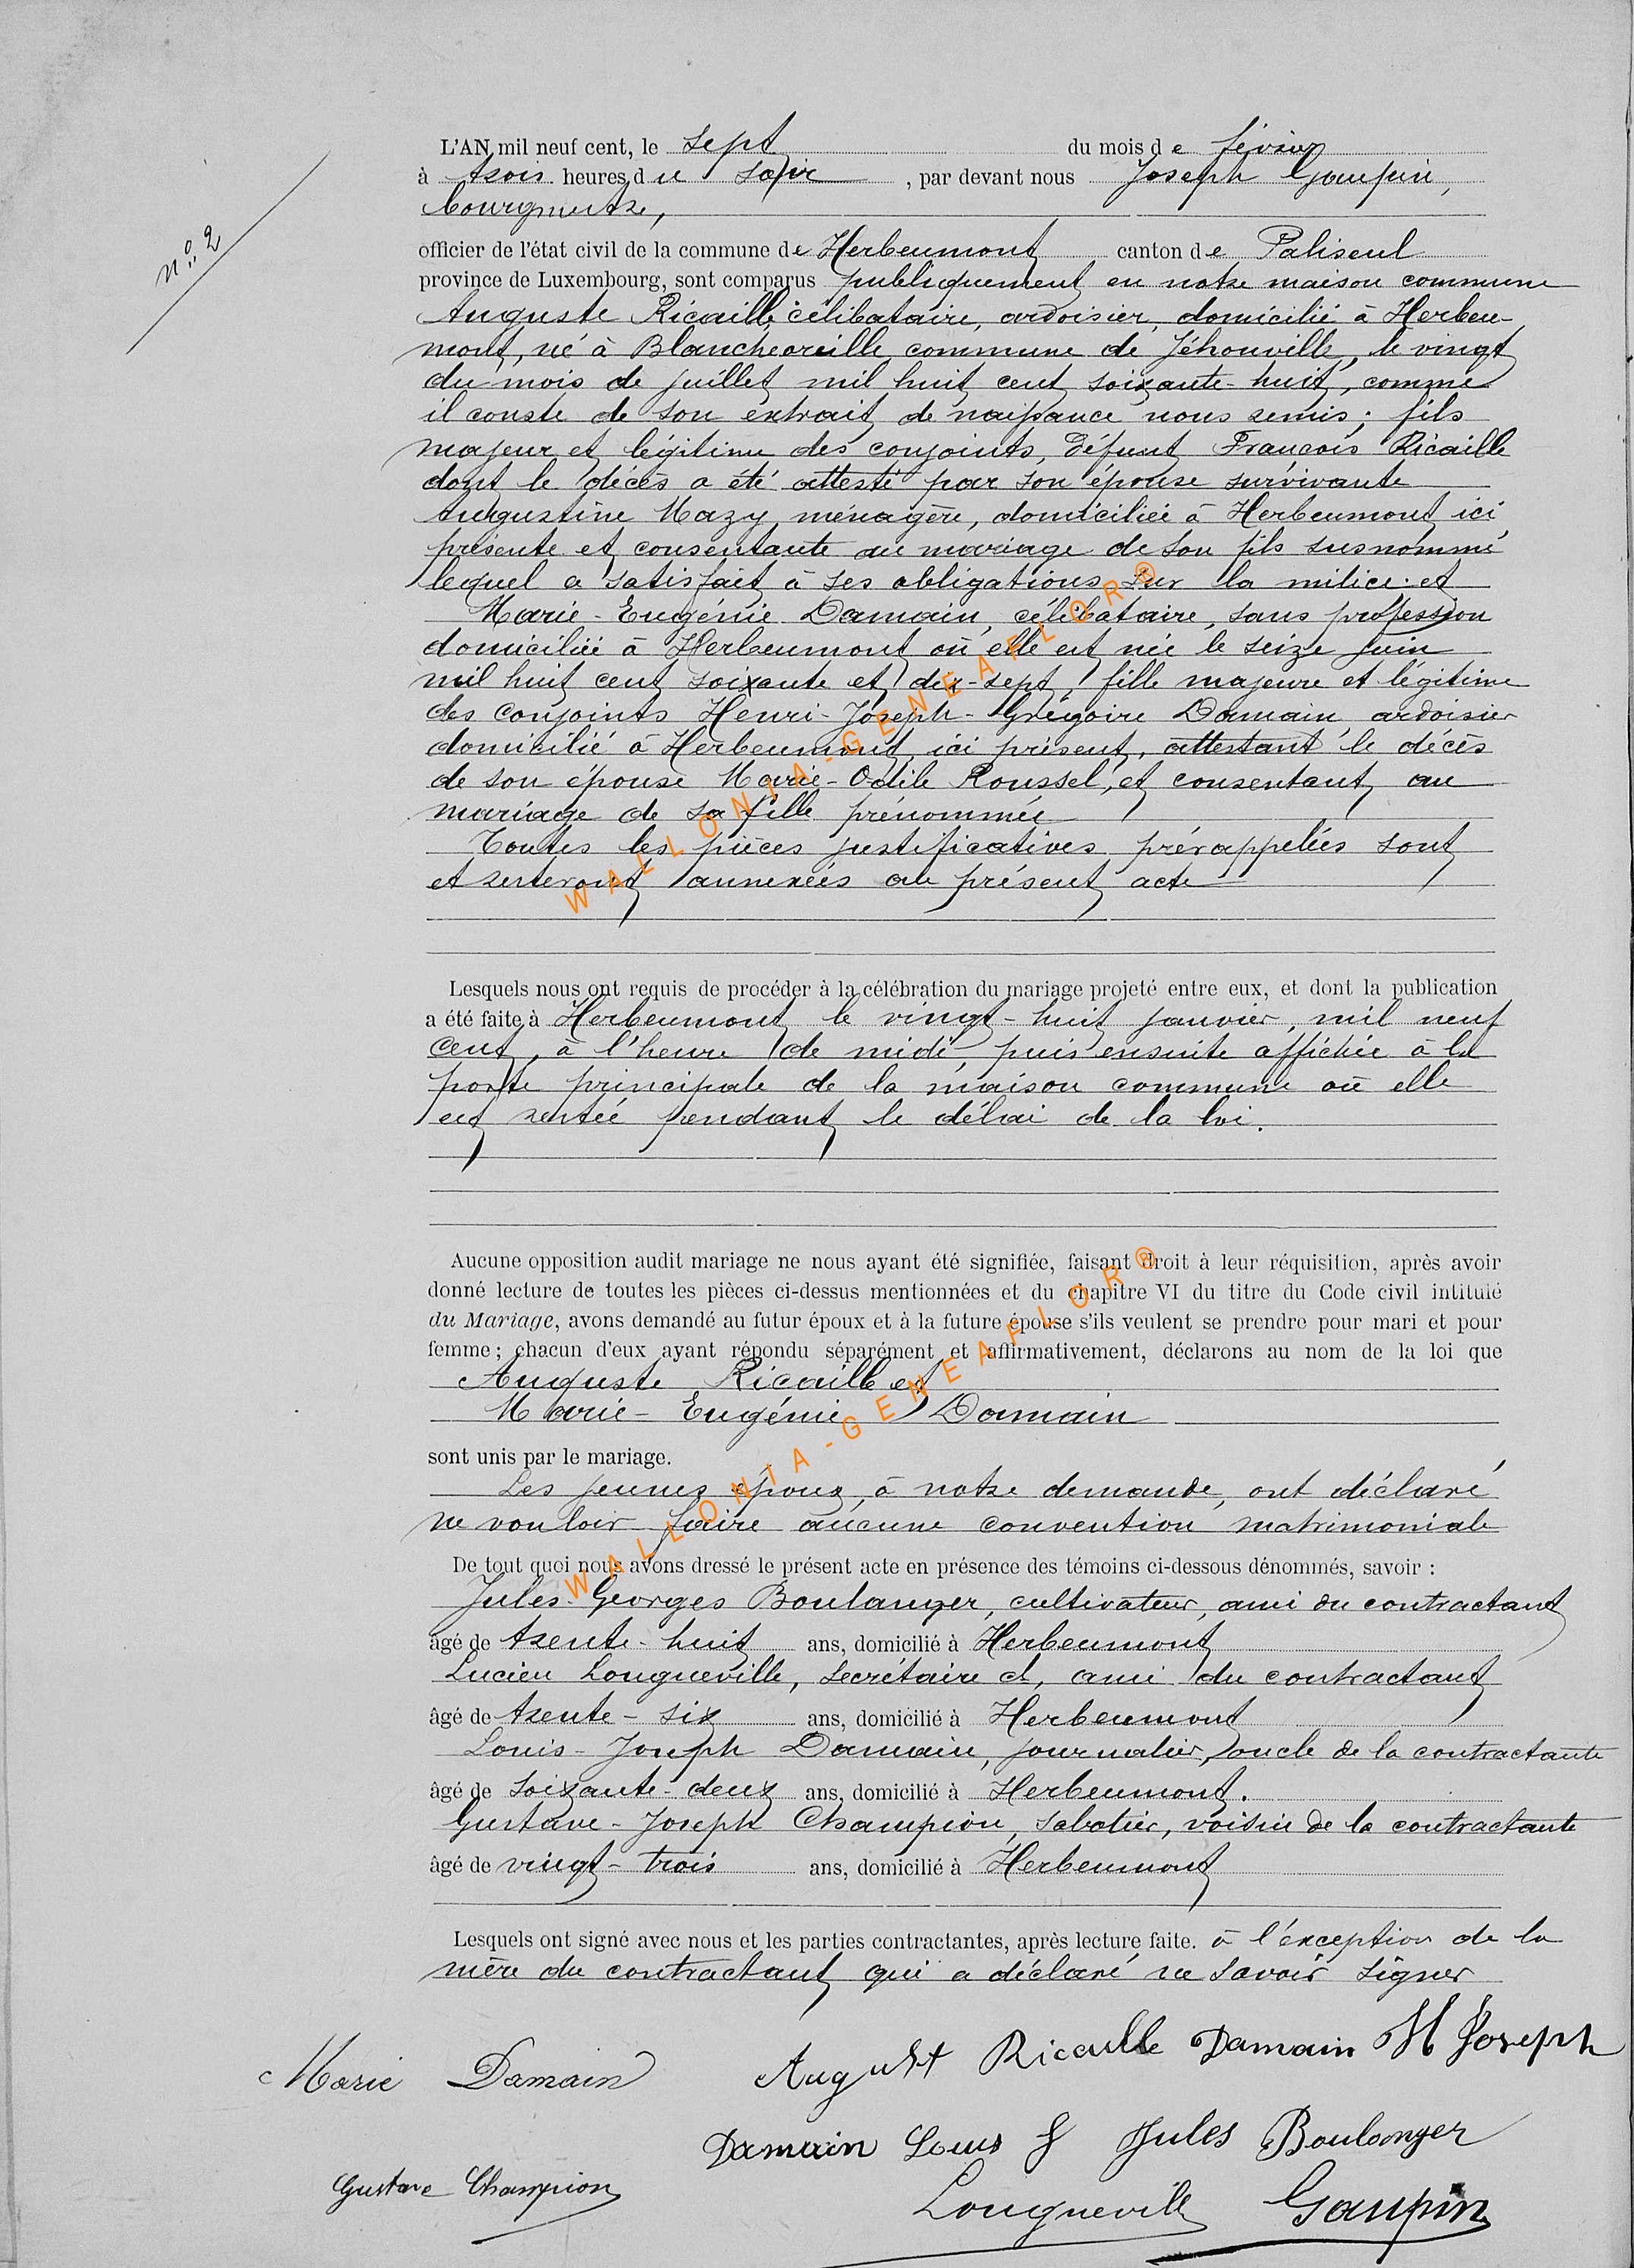 n° 2
L'AN mil neuf cent, le sept du mois de février
à trois heures du soir, par devant nous Joseph Gaupin,
bourgmestre,
officier de l'état civil de la commune de Herbeumont canton de Paliseul
province de Luxembourg, sont comparus publiquement en notre maison commune
Auguste Ricaille, célibataire, ardoisier, domicilié à Herbeu-
mont, né à Blancheoreille, commune de Jéhonville, le vingt
du mois de juillet mil huit cent soixante-huit, comme
il conste de son extrait de naissance nous remis; fils
majeur et légitime des conjoints, défunt François Ricaille
dont le décès a été attesté par son épouse survivante
Augustine Mazy, ménagère, domiciliée à Herbeumont, ici
présente et consentante au mariage de son fils susnommé
lequel a satisfait à ses obligations sur la milice; et
Marie-Eugénie Damain, célibataire, sans profession
domiciliée à Herbeumont où elle est née le seize juin
mil huit cent soixante et dix-sept, fille majeure et légitime
des conjoints Henri-Joseph-Grégoire Damain, ardoisier
domicilié à Herbeumont, ici présent, attestant le décès
de son épouse Marie-Odile Roussel, et consentant au
mariage de sa fille prénommée
Toutes les pièces justificatives prérappelées sont
et resteront annexées au présent acte
Lesquels nous ont requis de procéder à la célébration du mariage projeté entre eux, et dont la publication
a été faite à Herbeumont le vingt-huit janvier, mil neuf
cent, à l'heure de midi, puis ensuite affichée à la
porte principale de la maison commune où elle
est restée pendant le délai de la loi.
Aucune opposition audit mariage ne nous ayant été signifiée, faisant droit à leur réquisition, après avoir
donné lecture de toutes les pièces ci-dessus mentionnées et du chapitre VI du titre du Code civil intitulé
du Mariage, avons demandé au futur époux et à la future épouse s'ils veulent se prendre pour mari et pour
femme; chacun d'eux ayant répondu séparément et affirmativement, déclarons au nom de la loi que
Auguste Ricaille et
Marie-Eugénie Damain
sont unis par le mariage.
Les jeunes époux, à notre demande, ont déclaré
ne vouloir faire aucune convention matrimoniale
De tout quoi nous avons dressé le présent acte en présence des témoins ci-dessous dénommés, savoir :
Jules-Georges Boulanger, cultivateur, ami du contractant
âgé de trente-huit ans, domicilié à Herbeumont
Lucien Longueville, secrétaire cl, ami du contractant
âgé de trente-six ans, domicilié à Herbeumont
Louis-Joseph Damain, journalier, oncle de la contractante
âgé de soixante-deux ans, domicilié à Herbeumont.
Gustave-Joseph Champion, sabotier, voisin de la contractante
âgé de vingt-trois ans, domicilié à Herbeumont
Lesquels ont signé avec nous et les parties contractantes, après lecture faite. à l'exception de la
mère du contractant qui a déclaré ne savoir signer
Marie Damain August Ricaille Damain H Joseph
Damain Louis J Jules Boulanger
Gustave Champion Longueville Gaupin
WALLONIA-GENEAFLOR®
WALLONIA-GENEAFLOR®